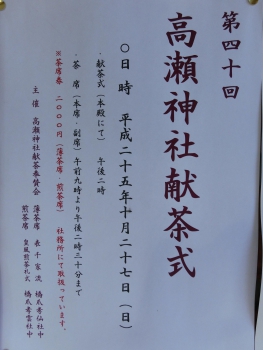 第四十回
高瀬神社献茶式
〇日時 平成二十五年十月二十七日(日)
・献茶式(本殿にて) 午後二時
・茶席(本席・副席) 午前九時より午後二時三十分まで
※茶席券 二〇〇〇円(薄茶席・煎茶席) 社務所にて取扱っています。
主催 高瀬神社献茶奉賛会 薄茶席 表千家流 橋爪秀仙社中
煎茶席 皇風煎茶礼式 橋爪秀雲社中